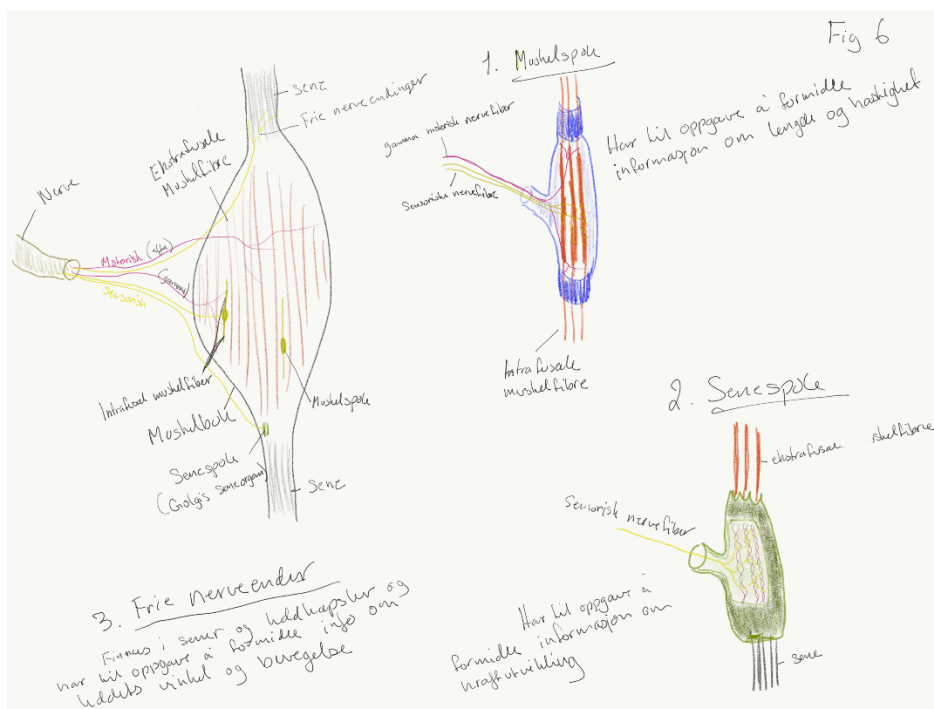 Fig 6
Sene
Frie nerveendinger
Ekstrafusale
Muskelfibre
Nerve
Motorisk (alfa)
(gamma)
Sensorisk
Intrafusal muskelfiber
Muskelbuk
Muskelspole
Senespole
(Golgis seneorgan)
Sene
1. Muskelspole
gamma motorisk nervefiber
Sensoriske nervefibre
Har til oppgave å formidle
informasjon om lengde og hastighet
Intrafusale
muskelfibre
2. Senespole
ekstrafusale skelfibre
Sensorisk nervefiber
Har til oppgave å
formidle informasjon om
kraftutvikling
sene
3. Frie nerveender
Finnes i sener og leddkapsler og
har til oppgave å formidle info om
leddets vinkel og bevegelse